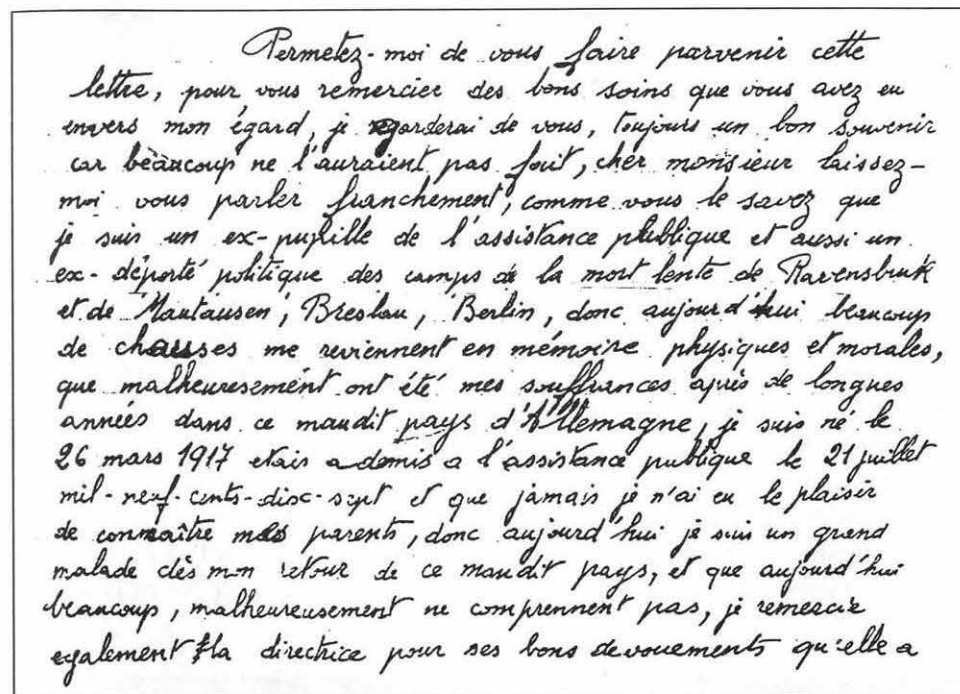 Permetez-moi de vous faire parvenir cette
lettre, pour vous remercier des bons soins que vous avez eu
envers mon égard, je garderai de vous, toujours un bon souvenir
car beaucoup ne l'auraient pas fait, cher monsieur laissez-
moi vous parler franchement, comme vous le savez que
je suis un ex-pupille de l'assistance publique et aussi un
ex-déporté politique des camps de la mort lente de Ravensbruk
et de Mautausen, Breslau, Berlin, donc aujourd'hui beaucoup
de chauses me reviennent en mémoire physiques et morales,
que malheuresemént ont été mes souffrances après de longues
années dans ce maudit pays d'Allemagne, je suis né le
26 mars 1917 etais admis a l'assistance publique le 21 juillet
mil-neuf-cents-disc-sept et que jamais je n'ai eu le plaisir
de connaître mes parents, donc aujourd'hui je suis un grand
malade dès mon retour de ce maudit pays, et que aujourd'hui
beaucoup, malheureusement ne comprennent pas, je remercie
egalement la directrice pour ses bons devouements qu'elle a